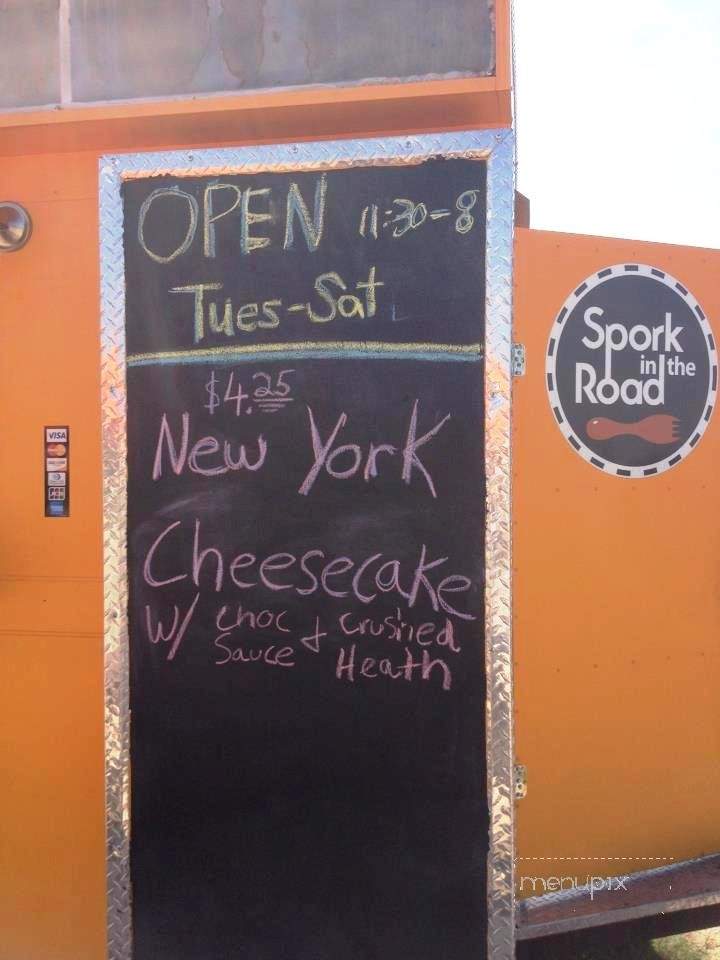 OPEN 11:30-8
Tues-Sat
$4.25
New York
Cheesecake
W/ choc Sauce + crushed Heath
Spork
in the
Road
VISA
menupix